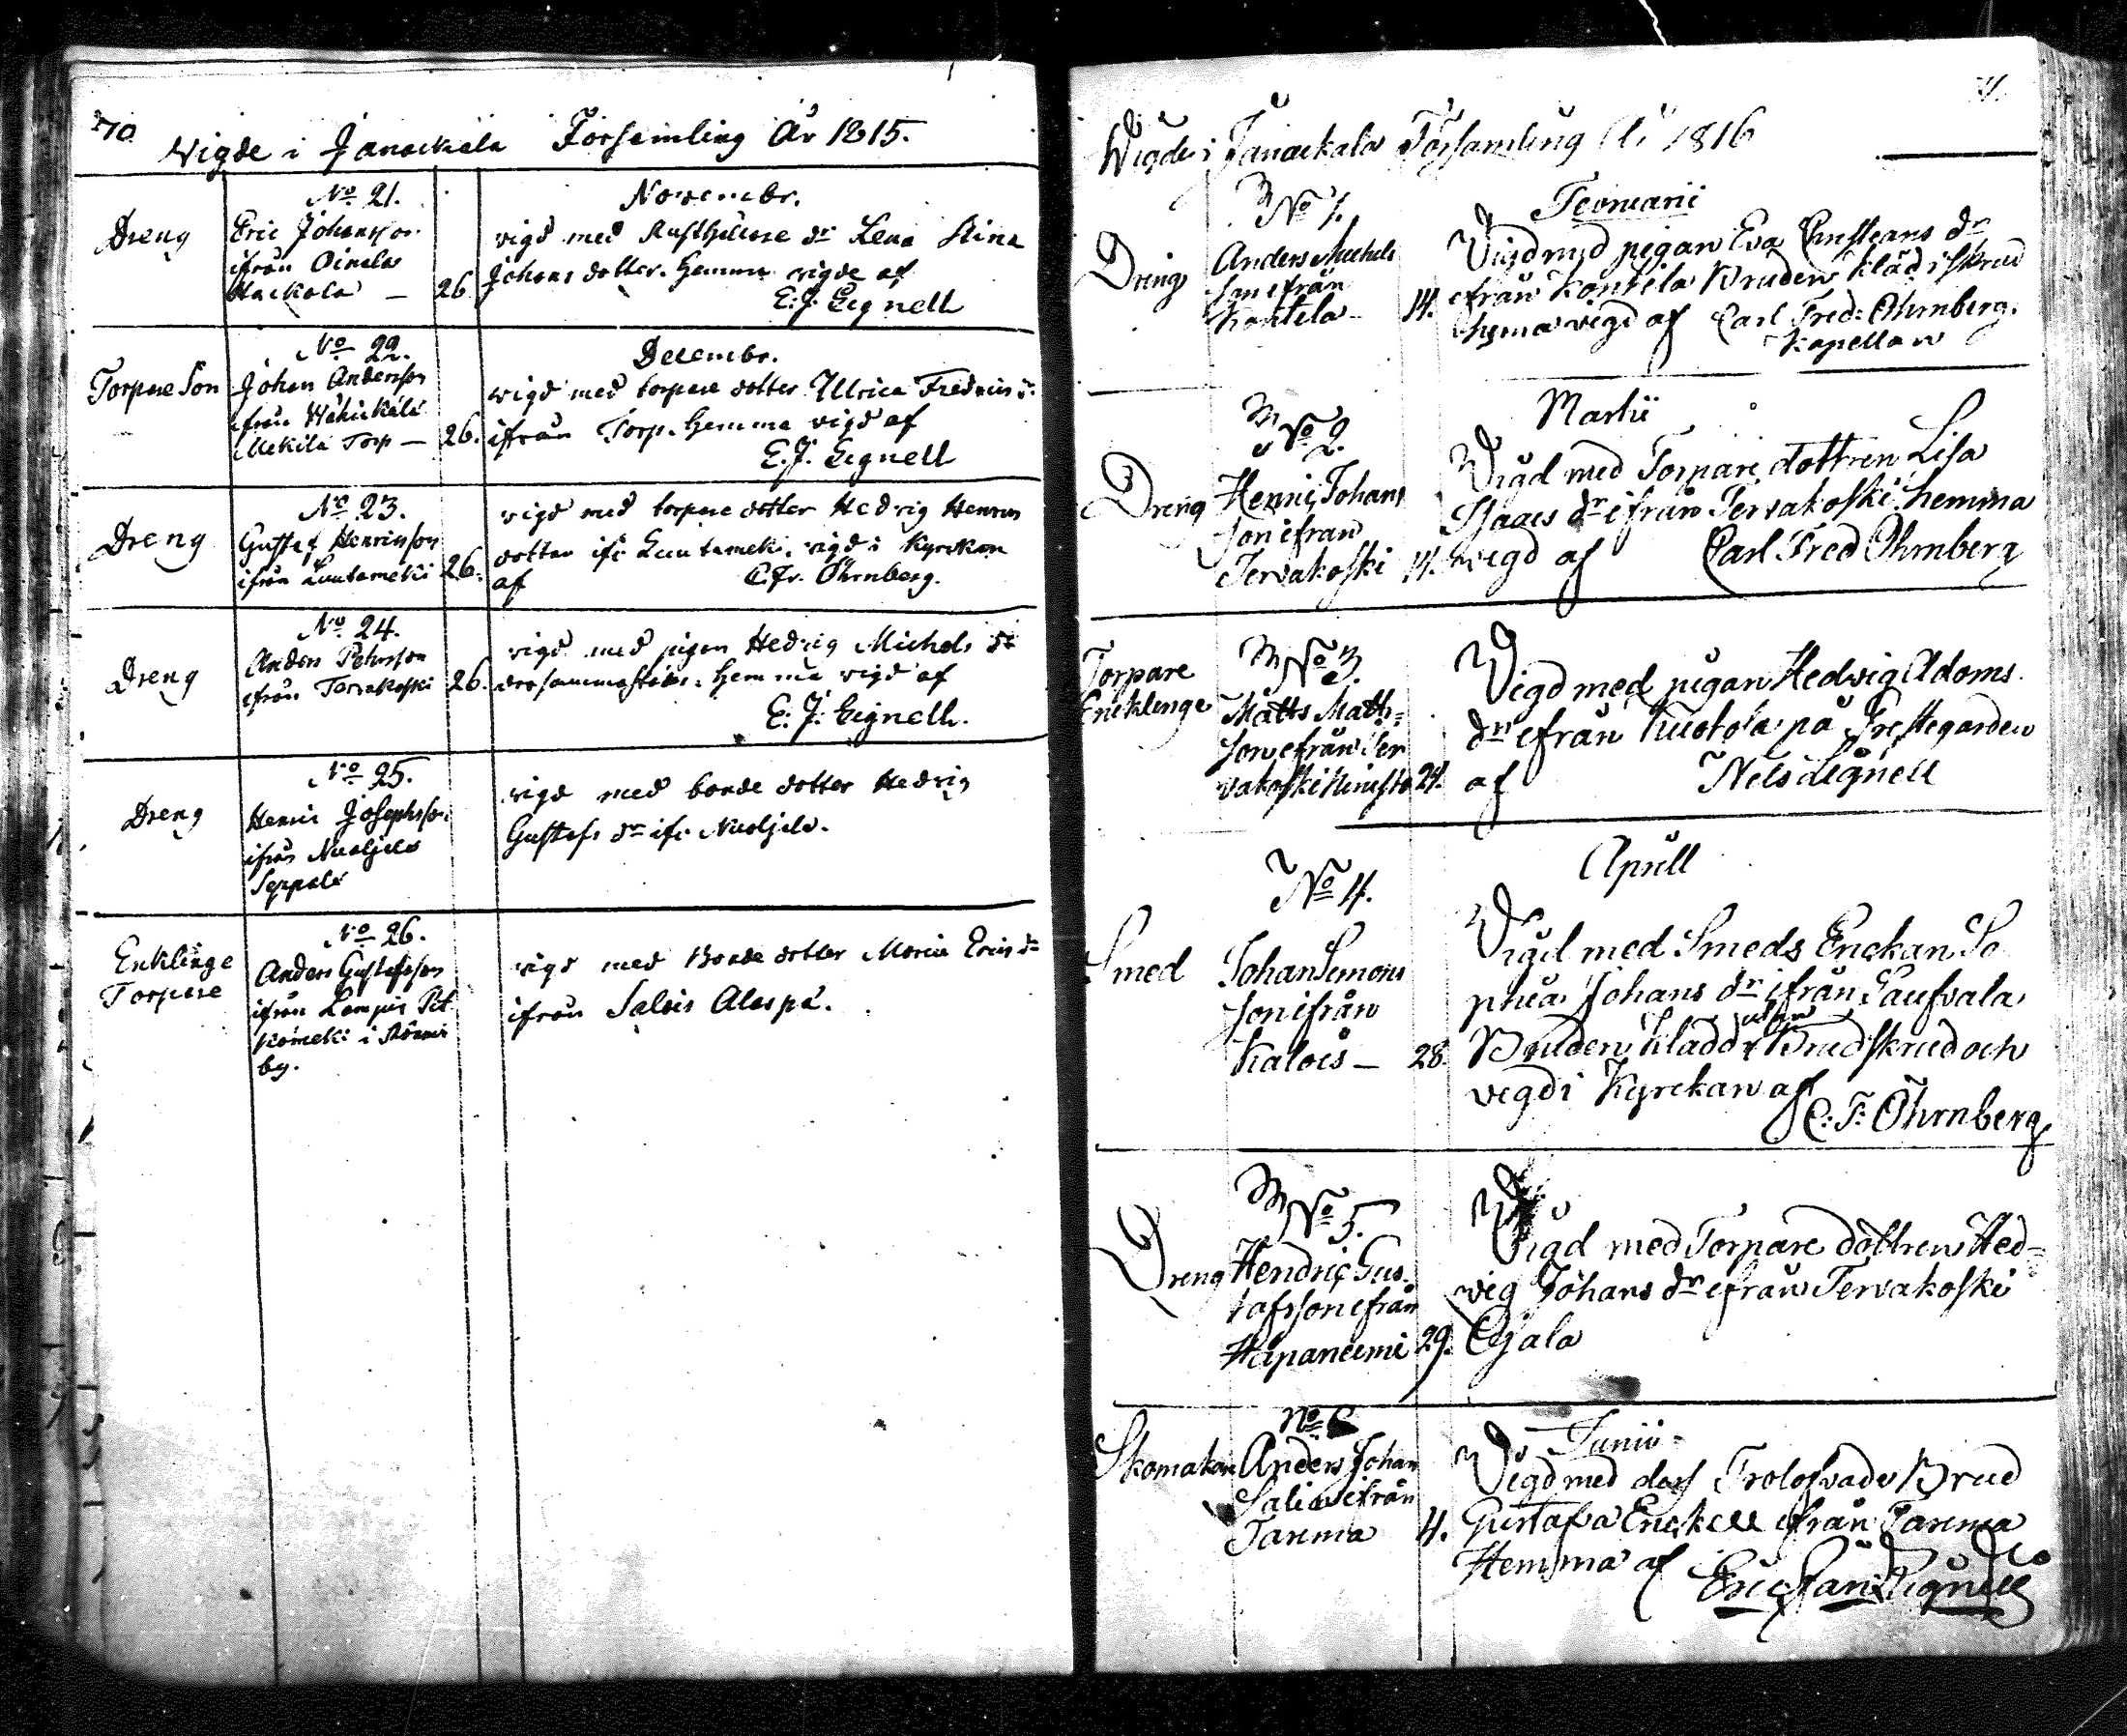 70
Vigde i Janackala Församling År 1815.
No 21.
Novembr.
Dreng
Eric Johansson
ifrån Oinala
Hackola — 26
vigd med Rusthållare dr Lena Stina
Johans dotter. Hemma vigde af
E. J. Lignell
No 22.
Decembr.
Torpare Son
Johan Andersson
ifrån
Mekilä Torp — 26.
vigd med torpare dotter Ullrica Fredrics dr
ifrån Torp. Hemma vigd af
E. J. Lignell
No 23.
Dreng
Gustaf Henricsson
ifrån Luutameki 26.
vigd med torpare dotter Hedvig Henrics
dotter ifr. Luutameki. vigd i Kyrckan
af C. Fr. Öhrnberg.
No 24.
Dreng
Anders Pehrsson
ifrån Tervakoski 26.
vigd med pigan Hedvig Michels dr
dersammastädes. Hemma vigd af
E. J. Lignell.
No 25.
Dreng
Henric Josephsson
ifrån Nuoljala
Seppälä
vigd med bonde dotter Hedvig
Gustafs dr ifr. Nuoljala.
No 26.
Enklinge
Torpare
Anders Gustafsson
ifrån
i
by.
vigd med Bonde dotter Maria Erics dr
ifrån Salois Alaspä.
71.
Vigde i Janackala Församling År 1816
No 1.
Februarii
Dreng
Anders Michels
son ifrån
Kontela 14.
Vigd med pigan Eva Christians dr
ifrån Kontela Bruden Kläd i skrud
hema vigd af Carl Fred: Öhrnberg.
Kapellan
No 2.
Martii
Dreng
Henric Johans
son ifran
Tervakoski 14.
Vigd med Torpare dottren Lisa
Isaacs dr ifrån Tervakoski hemma
vigd af Carl Fred Öhrnberg
Torpare
Encklinge
No 3.
Matts Matts=
son ifrån Ter
vakoski 24.
Vigd med pigan Hedvig Adams
dr ifrån på Prestegården
af Nils Lignell
No 4.
Aprill
Smed
Johan Simons
son ifrån
Kalois — 28.
Vigd med Smeds Enckan So
phia Johans dr ifrån
Bruden Kladd utan Brudskrud och
vigd i Kyrckan af
C: F: Öhrnberg
No 5.
Dreng
Hendric Gus=
tafsson ifrån
Hapaniemi 29.
Vigd med Torpare dottren Hed=
vig Johans dr ifrån Tervakoski
Ojala
No 6
Junii
Skomakare
Anders Johan
Salin ifrån
Tarima 4.
Vigd med dess Trolofvade Brud
Gustafva Enckell ifrån Tarima
Hemma af Eric Lignell